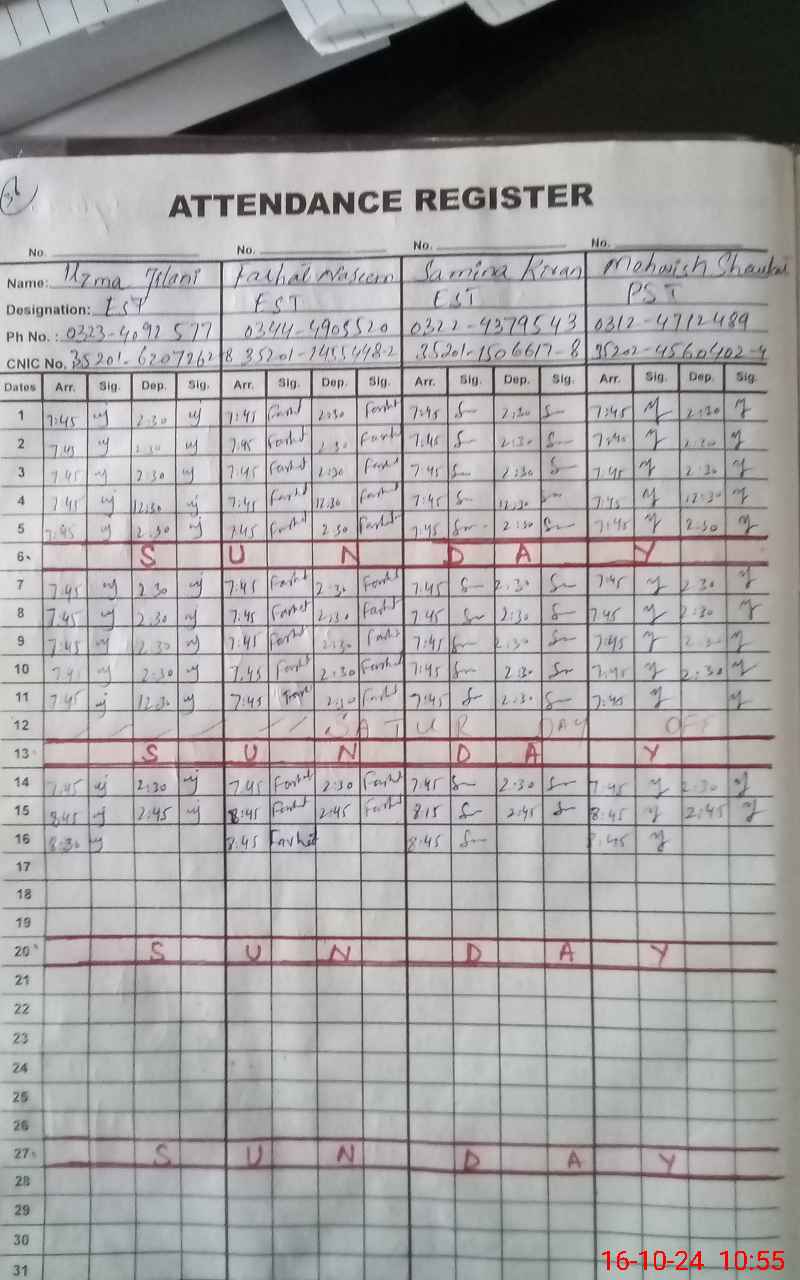 ATTENDANCE REGISTER
No. No. No. No.
Name: Uzma Jilani Farhat Naseem Samina Kiran Mehwish Shaukat
Designation: EST EST EST PST
Ph No.: 0323-4092577 0344-4905520 0322-4379543 0312-4712489
CNIC No. 35201-6207262-8 35201-2455448-2 35201-1506617-8 35202-4560402-4
Dates Arr. Sig. Dep. Sig. Arr. Sig. Dep. Sig. Arr. Sig. Dep. Sig. Arr. Sig. Dep. Sig.
1 7:45 2:30 7:45 Farht 2:30 Farht 7:45 2:30 7:45 2:30
2 7:45 2:30 7:45 Farht 2:30 Farht 7:45 2:30 7:40 2:30
3 7:45 2:30 7:45 Farht 2:30 Farht 7:45 2:30 7:45 2:30
4 7:45 12:30 7:45 Farht 12:30 Farht 7:45 12:30 7:45 12:30
5 7:45 2:30 7:45 Farht 2:30 Farht 7:45 2:30 7:45 2:30
6 S U N D A Y
7 7:45 2:30 7:45 Farht 2:30 Farht 7:45 2:30 7:45 2:30
8 7:45 2:30 7:45 Farht 2:30 Farht 7:45 2:30 7:45 2:30
9 7:45 2:30 7:45 Farht 2:30 Farht 7:45 2:30 7:45 2:30
10 7:45 2:30 7:45 Farht 2:30 Farht 7:45 2:30 7:45 2:30
11 7:45 12:30 7:45 2:30 Farht 7:45 2:30 7:45
12 SATUR DAY OFF
13 S U N D A Y
14 7:45 2:30 7:45 Farht 2:30 Farht 7:45 2:30 7:45 2:30
15 8:45 2:45 8:45 Farht 2:45 Farht 8:15 2:45 8:45 2:45
16 8:30 8:45 Farhat 8:45 8:45
17
18
19
20 S U N D A Y
21
22
23
24
25
26
27 S U N D A Y
28
29
30
31
16-10-24 10:55